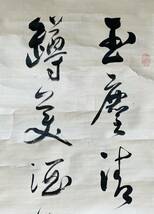 玉麈清
罇美酒